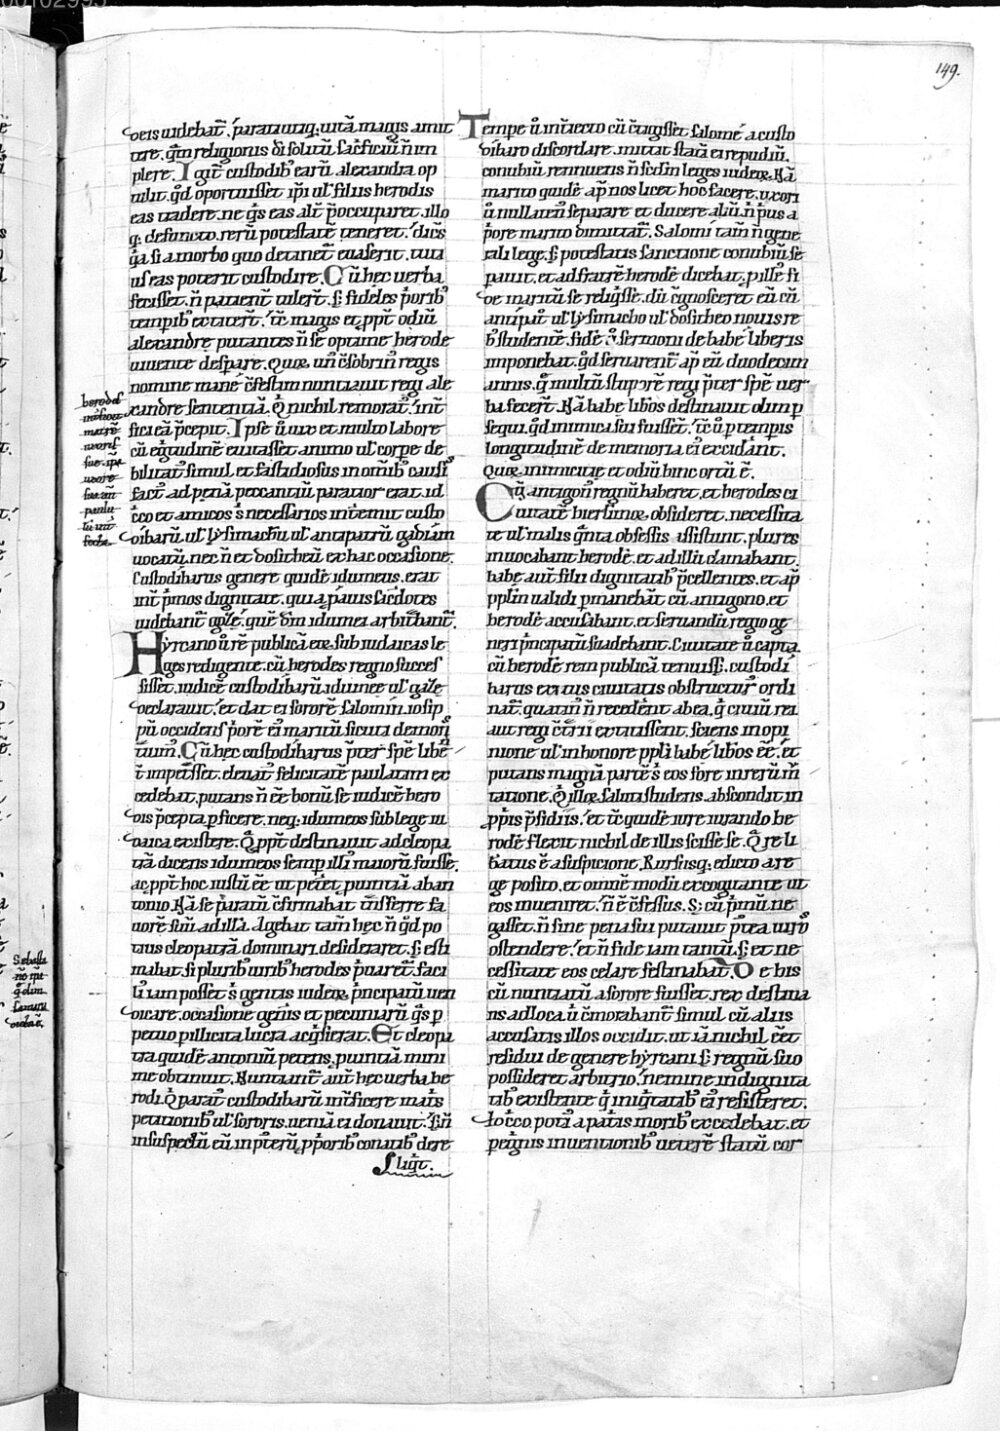 149.
deis uidebat̄. parati utiq; uitā magis amit
tere. q̄m religionis di solitū sac̄ficiū n̄ im
plere. Igit̄ custodib; earū alexandra op
tulit. qd̄ oportuisset ip̄i ul̄ filiis herodis
eas tradere. ne q̄s eas alt̄ p̄occuparet. illo
q; defuncto. rerū potestatē teneret. dic̄s
q̄a si a morbo quo detinet̄ euaserit. tuti
us eas poterit custodire. Cū hec uerba
fecisset. n̄ patient̄ tuler̄t. s; fideles p̄orib;
temporib; extiter̄t. tc̄ magis et ppt̄ odiū
alexandre putantes n̄ se optime herode
uiuente despare. Quoꝝ un̄ c̄sobrin̄ regis
nomine mane c̄festim nuntiauit regi ale
xandre sententiā. Q̄ nichil remorat̄. int̄
fici eā p̄cepit. Ipse ū uix et multo labore
cū egritudinē euitasset animo ul̄ corpe de
bilitat̄ simul et fastidiosus in omib; causis
fact̄ ad penā peccantiū paratior erat. id
c̄co et amicos s̄ necessarios int̄emit custo
dibarū ul̄ lysimachū ul̄ antipatrū gadiam
uocatū. nec n̄ et dositheū ex hac occasione.
Custodibarus genere quidē idumeus. erat
int̄ p̄mos dignitate. quia p̄auis sac̄dotes
uidebant̄ gole. quē dm̄ idumei arbit̄bant̄.
Hyrcano ū rē publicā eoꝝ sub iudaicas le
ges redigente. cū herodes regno succes
sisset. iudicē custodibarū idumee ul̄ gaze
declarauit. et dat ei sororē salomin. iosip
pū occidens p̄orē ei maritū sicut demon
t̄uim;. Cū hec custodibarus p̄ter spē libēt̄
t̄ impet̄sset. eleuat̄ felicitate paulatim ex
cedebat. putans n̄ eē bonū se iudicē hero
dis p̄cepta p̄ficere. neq; idumeos sub lege iu
daica existere. Q̄ppt̄ destinauit ad cleopa
trā dicens idumeos semp̄ illi maiorū fuisse.
ac ppt̄ hoc iustū eē ut petēt puintiā ab an
tonio. Nā se paratū c̄firmabat t̄nsferre fa
uorē suū ad illā. Agebat tam̄ hec n̄ qd̄ po
tius cleopatrā dominari desideraret. s; esti
mabat si plurib; uirib; herodes p̄uaret̄. faci
li; iam posset s̄ gentis iudeꝝ p̄ncipatū uen
dicare. occasione gen̄is et pecuniarū q̄s p̄
petuo p illicita lucra acq̄sierat. Et cleopa
tra quidē antoniū petens. puintiā mini
me obtinuit. Nuntiant̄ aūt hec uerba he
rodi. Q̄ parat̄ custodibarū int̄ficere mat̄s
petitionib; ul̄ sororis. ueniā ei donauit. S; n̄
insuspectū eū int̄erū p̄ priorib; conatib; dere
liq̄t.
herodes
int̄fecit
maritū
uxoris
sue. ipse
uxore
sua añ
paulu
lū int̄
fecta.
Sebasta
nō ipse
q̄ olim
samaria
dicta ē.
Tempe ū int̄iecto cū c̄tigisset salome a custo
dibaro discordare. mittit statī ei repudiū.
conubiū rennuens n̄ scdm leges iudeoꝝ. Nā
marito quidē ap̄ nos licet hoc facere. uxori
ū nullaten̄ separare et ducere aliū. n̄ p̄us a
p̄ore marito dimittat̄. Salomi tam̄ n̄ gene
rali lege. s; potestatis sanctione conubiū se
parauit. et ad fratrē herodē dicebat. p illi; fi
de maritū se reliq̄sse. dū c̄gnosceret eū cū
antipat̄ ul̄ lysimacho ul̄ dositheo nouis re
b; studente. fidē s̄ sermoni de babe liberis
imponebat. qd̄ seruarent̄ ap̄ eū duodecim
annis. q̄ multū stuporē regi p̄ter spē uer
ba fecer̄t. Nā babe lib̄os destinauit olim p̄
sequi. qd̄ inimica sui fuisset. tc̄ ū p tempis
longitudinē de memoria ei; excidant̄.
Quoꝝ inimicitie et odiū hinc ortū ē.
Cū antigon̄ regnū haberet. et herodes ci
uitatē hierlimoꝝ obsideret. necessita
te ul̄ malis q̄nta obsessis assistunt. plures
inuocabant herodē. et ad illū clamabant.
babe aūt filii dignitatib; p̄cellentes. et ap̄
pplm̄ ualidi p̄manebāt cū antigono. et
herodē accusabant. et seruandū regio ge
neri p̄ncipatū suadebant. Ciuitate ū capta.
cū herodē rem publicā tenuiss;. custodi
barus exitus ciuitatis obstructur; ordi
nat̄. quatin̄ n̄ recedēnt ab ea. q̄ ciuiū rei
aut regi c̄trii extitissent. sciens in opi
nione ul̄ in honore ppli babe lib̄os eē. et
putans magnā partē s̄ eos fore in rerū m̄
tatione. Q̄ illoꝝ saluti studens. abscondit in
p̄pis p̄sidiis. et tc̄ quidē iure iurando he
rodē flexit nichil de illis scisse se. Q̄re li
b̄atus ē a suspicione. Rursusq; edicto a re
ge posito. et omnē modū excogitante ut
eos inueniret. n̄ ē c̄fessus. S; cū p̄mū ne
gasset. n̄ sine pena sui putauit p̄tea uiros
ostendere. et n̄ fide iam tantū. s; et ne
cessitate eos celare festinabat. De his
cū nuntiatū a sorore fuisset. rex destina
ns ad loca ū c̄morabant̄ simul cū aliis
accusatis illos occidit. ut iā nichil eēt
residui de genere hyrcani. s; regnū suo
possideret arbitrio. nemine in dignita
tib; existente q̄ iniq̄tatib; ei; resisteret.
Idc̄co poti; a patis morib; excedebat. et
pegnis inuentionib; ueterē statū cor